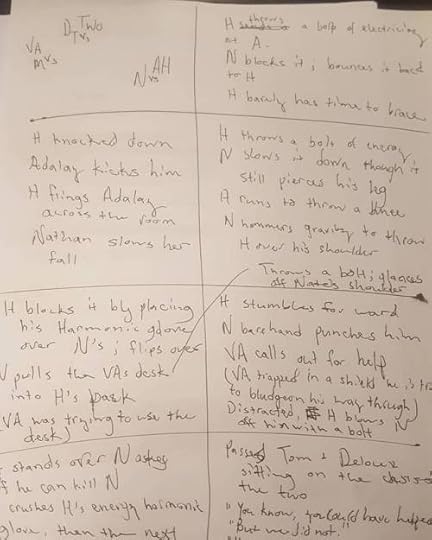 D Two
T vs
VA
m vs
AH
N vs
H throws a bolt of electricity
at A.
N blocks it; bounces it back
to H
H barely has time to brace
H knocked down
Adalay kicks him
H flings Adalay
across the room
Nathan slows her
fall
H throws a bolt of energy
N slows it down though it
still pierces his leg
A runs to throw a
N hammers gravity to throw
H over his shoulder
Throws a bolt; glances
off Nate's shoulder
H blocks it by placing
his Harmonic glove
over N's; flips over
N pulls the VAs desk
into H's back
(VA was trying to use the
desk)
H stumbles forward
N barehand punches him
VA calls out for help
(VA trapped in a shield he is
to bludgeon his way through)
Distracted, H blows N
off him with a bolt
stands over N
he can kill N
crushes H's energy harmonic
glove, then the next
Passed Tom + Delouse
sitting on the
the two
"You know, you could have helped
"But we did not."